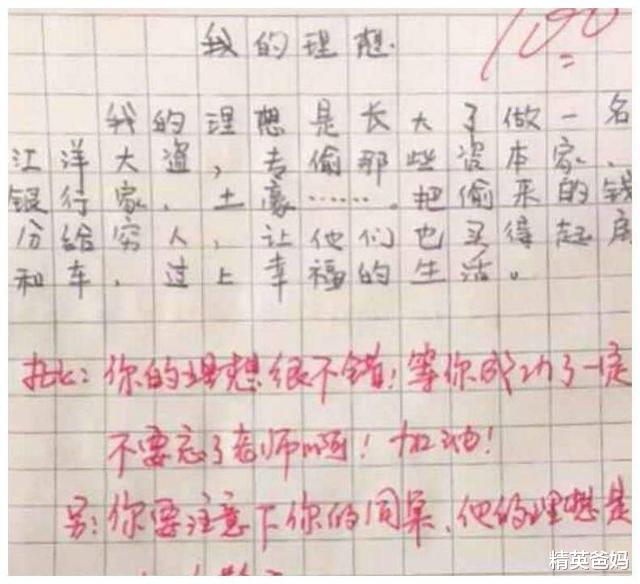 我的理想.
100
我的理想是长大了做一名
江洋大盗,专偷那些资本家、
银行家、土豪……。把偷来的钱
分给穷人,让他们也买得起房
和车,过上幸福的生活。
批:你的理想很不错!等你成功了一定
不要忘了老师啊!加油!
另:你要注意下你的同桌,他的理想是
精英爸妈